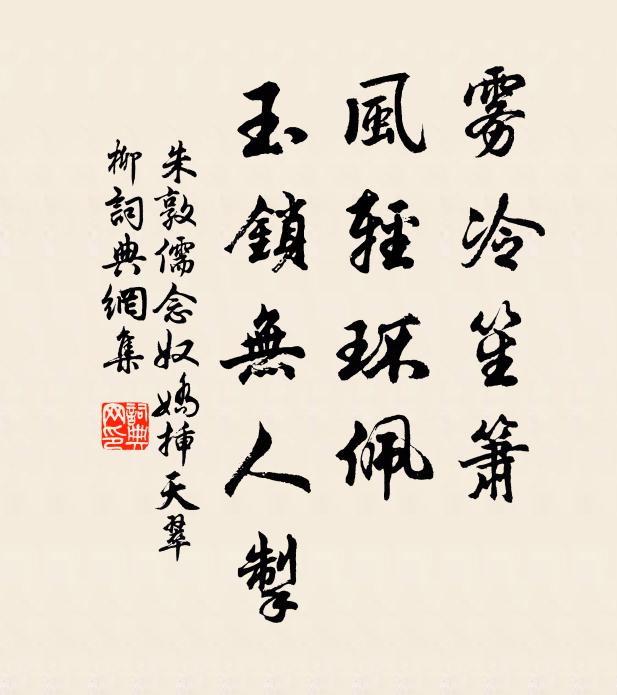 雾冷笙簫
風輕环佩
玉鎖無人掣
朱敦儒念奴嬌插天翠
柳詞典網集
詞典
网印